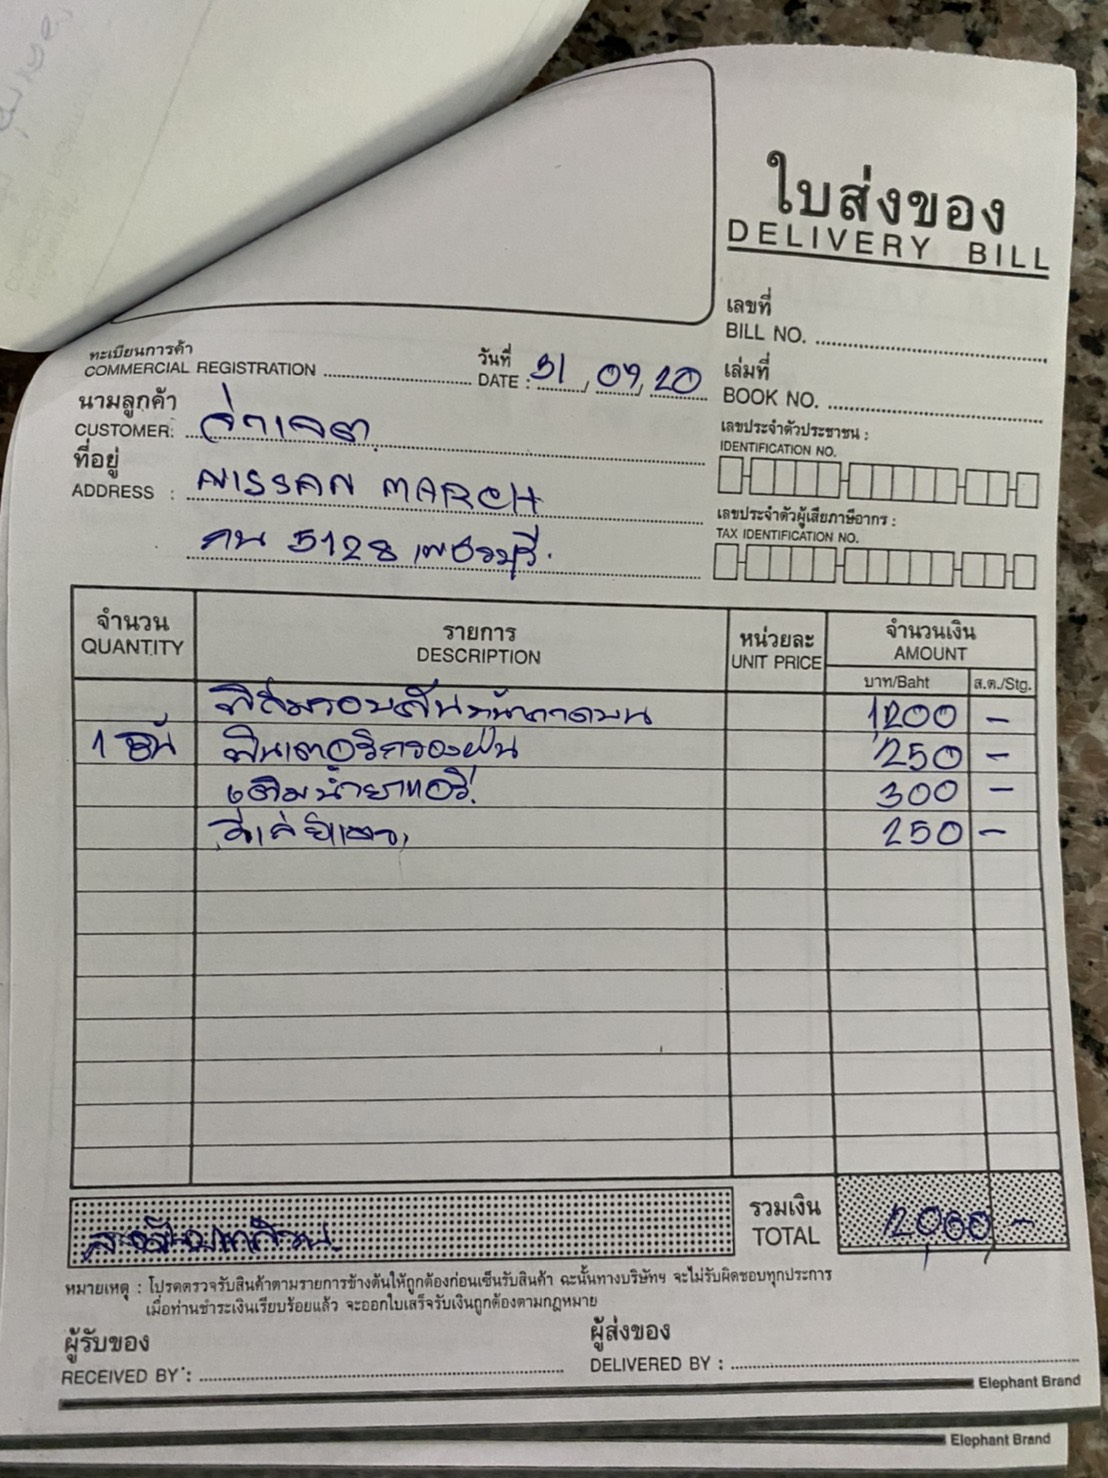 ใบส่งของ
DELIVERY BILL
เลขที่
BILL NO.
ทะเบียนการค้า
COMMERCIAL REGISTRATION
วันที่
DATE : 31, 07, 20
เล่มที่
BOOK NO.
นามลูกค้า
CUSTOMER: จ่าเจต
เลขประจำตัวประชาชน :
IDENTIFICATION NO.
ที่อยู่
ADDRESS : NISSAN MARCH
เลขประจำตัวผู้เสียภาษีอากร :
TAX IDENTIFICATION NO.
กน 5128 เพชรบุรี.
จำนวน
QUANTITY
รายการ
DESCRIPTION
หน่วยละ
UNIT PRICE
จำนวนเงิน
AMOUNT
บาท/Baht
ส.ต./Stg.
ฟิล์มรอบคันหน้าคาดบน 1,200 -
1 อัน ฟินเตอร์กรองฝุ่น 250 -
เติมน้ำยาแอร์. 300 -
รีเลย์ 250 -
รวมเงิน
TOTAL 2,000 -
สองพันบาทถ้วน.
หมายเหตุ : โปรดตรวจรับสินค้าตามรายการข้างต้นให้ถูกต้องก่อนเซ็นรับสินค้า ฉะนั้นทางบริษัทฯ จะไม่รับผิดชอบทุกประการ
เมื่อท่านชำระเงินเรียบร้อยแล้ว จะออกใบเสร็จรับเงินถูกต้องตามกฎหมาย
ผู้รับของ
RECEIVED BY :
ผู้ส่งของ
DELIVERED BY :
Elephant Brand
Elephant Brand